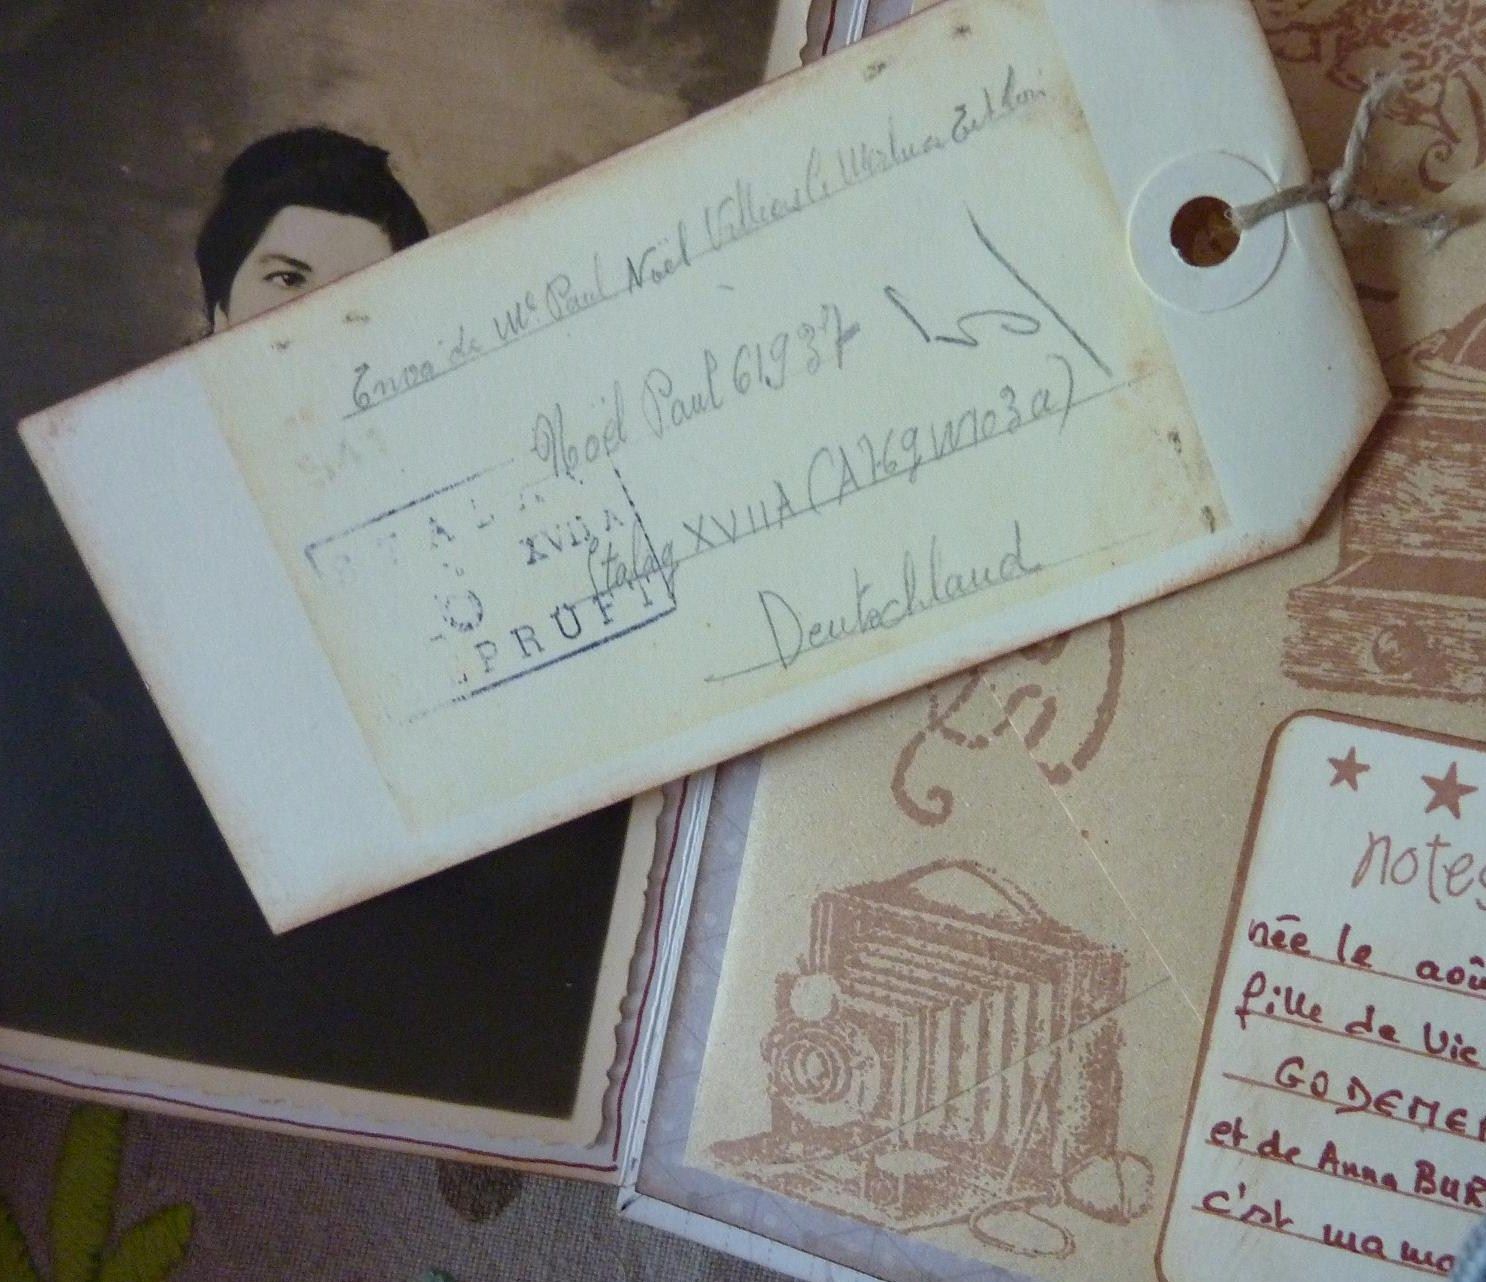 Envoi de Mr Paul Noël Villiers le
Noël Paul 61937
Stalag XVIIA (A769 W103a)
Deutschland
STALAG
XVII A
PRÜFT
notes
née le aoû
fille de Vic
GODEME
et de Anna BUR
c'est mama